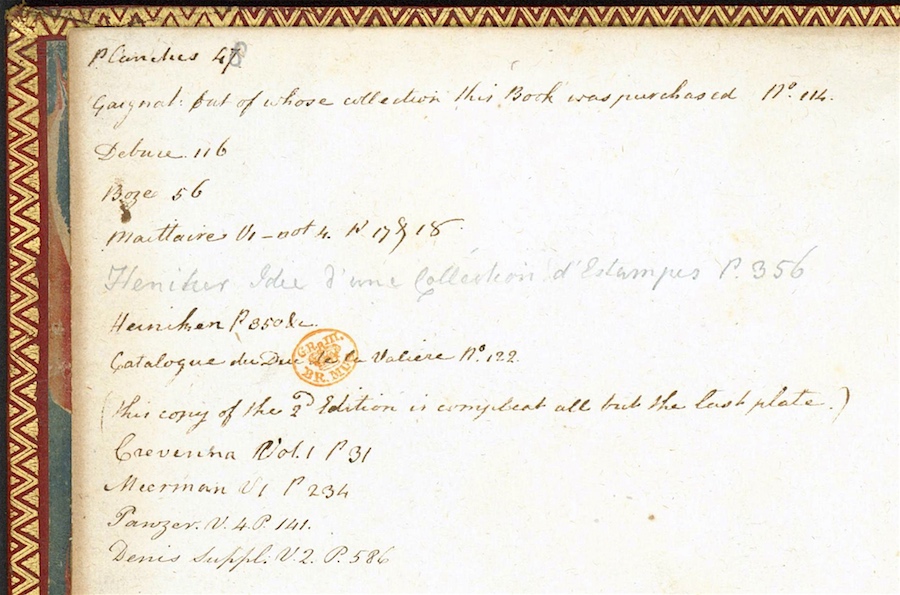 Planches 48
Gaignat: out of whose collection this Book was purchased No. 114.
Debure. 116
Boze 56
Maittaire V1 - not 4. P 17 & 18
Heniker Idee d'une Collection d'Estampes P. 356
Heiniken P 350 &c.
Catalogue du Duc de la Valiere No. 122.
(this copy of the 2d Edition is compleat all but the last plate.)
Crevenna Vol. 1 P 31
Meerman V1 P 234
Panzer. V. 4. P. 141.
Denis Suppl: V. 2. P. 586
BR. MUS